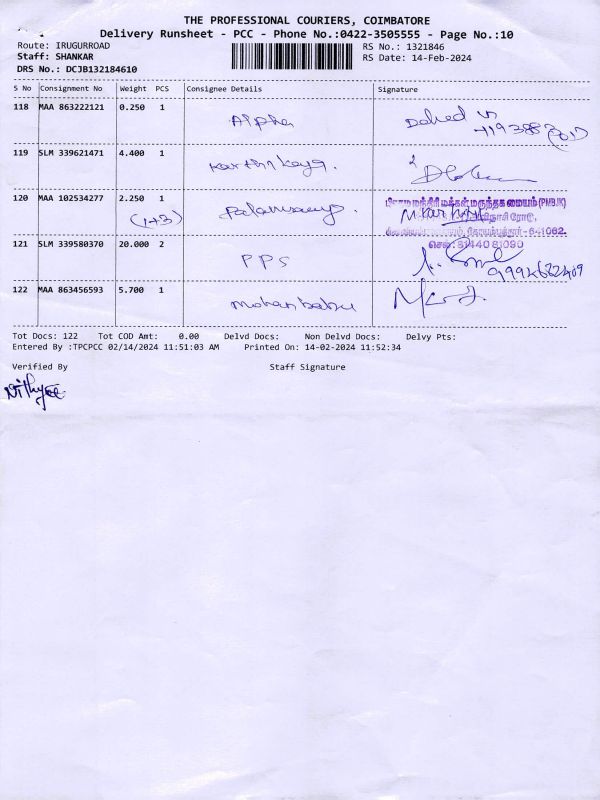 THE PROFESSIONAL COURIERS, COIMBATORE
Delivery Runsheet - PCC - Phone No.:0422-3505555 - Page No.:10
Route: IRUGURROAD
RS No.: 1321846
Staff: SHANKAR
RS Date: 14-Feb-2024
DRS No.: DCJB132184610
S No Consignment No Weight PCS Consignee Details Signature
118 MAA 863222121 0.250 1
Alpha
119 SLM 339621471 4.400 1
Karthikeya.
120 MAA 102534277 2.250 1
(1+3) Palanisamy.
பிரதம மந்திரி மக்கள் மருந்தக மையம் (PMBJK)
செல்: 81440 81090
121 SLM 339580370 20.000 2
PPS
122 MAA 863456593 5.700 1
mohan babu
Tot Docs: 122 Tot COD Amt: 0.00 Delvd Docs: Non Delvd Docs: Delvy Pts:
Entered By :TPCPCC 02/14/2024 11:51:03 AM Printed On: 14-02-2024 11:52:34
Verified By Staff Signature